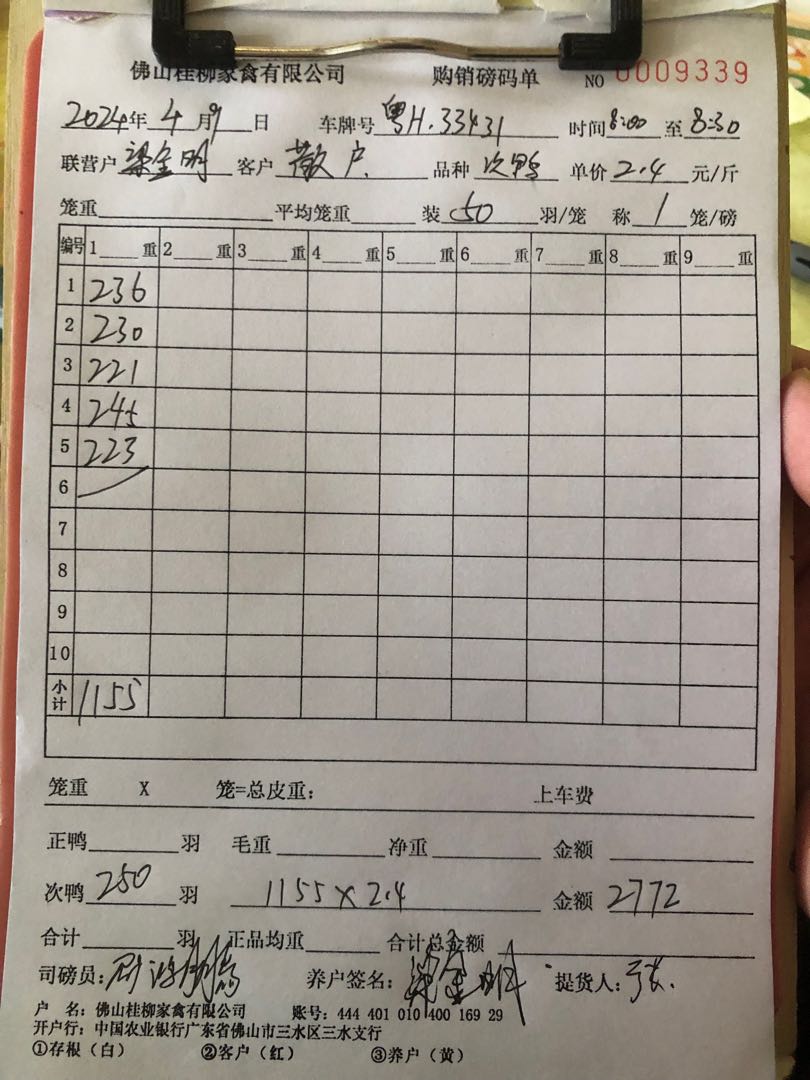 佛山桂柳家禽有限公司 购销磅码单 NO 0009339
2024年 4 月 9 日 车牌号 粤H·33431 时间 8:00 至 8:30
联营户 梁金明 客户 散户 品种 次鸭 单价 2.4 元/斤
笼重 平均笼重 装 50 羽/笼 称 1 笼/磅
编号 1 重 2 重 3 重 4 重 5 重 6 重 7 重 8 重 9 重
1 236
2 230
3 221
4 245
5 223
6
7
8
9
10
小计 1155
笼重 X 笼=总皮重: 上车费
正鸭 羽 毛重 净重 金额
次鸭 250 羽 1155×2.4 金额 2772
合计 羽 正品均重 合计总金额
司磅员: 养户签名: 梁金明 提货人:
户 名: 佛山桂柳家禽有限公司 账号: 444 401 010 400 169 29
开户行: 中国农业银行广东省佛山市三水区三水支行
①存根(白) ②客户(红) ③养户(黄)